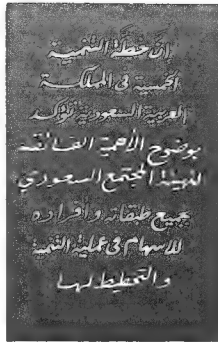 إن خطة التنمية
الخمسية في المملكة
العربية السعودية تؤكد
بوضوح الأهمية الفائقة
لتهيئة المجتمع السعودي
بجميع طبقاته وأفراده
للاسهام في عملية التنمية
والتخطيط لها